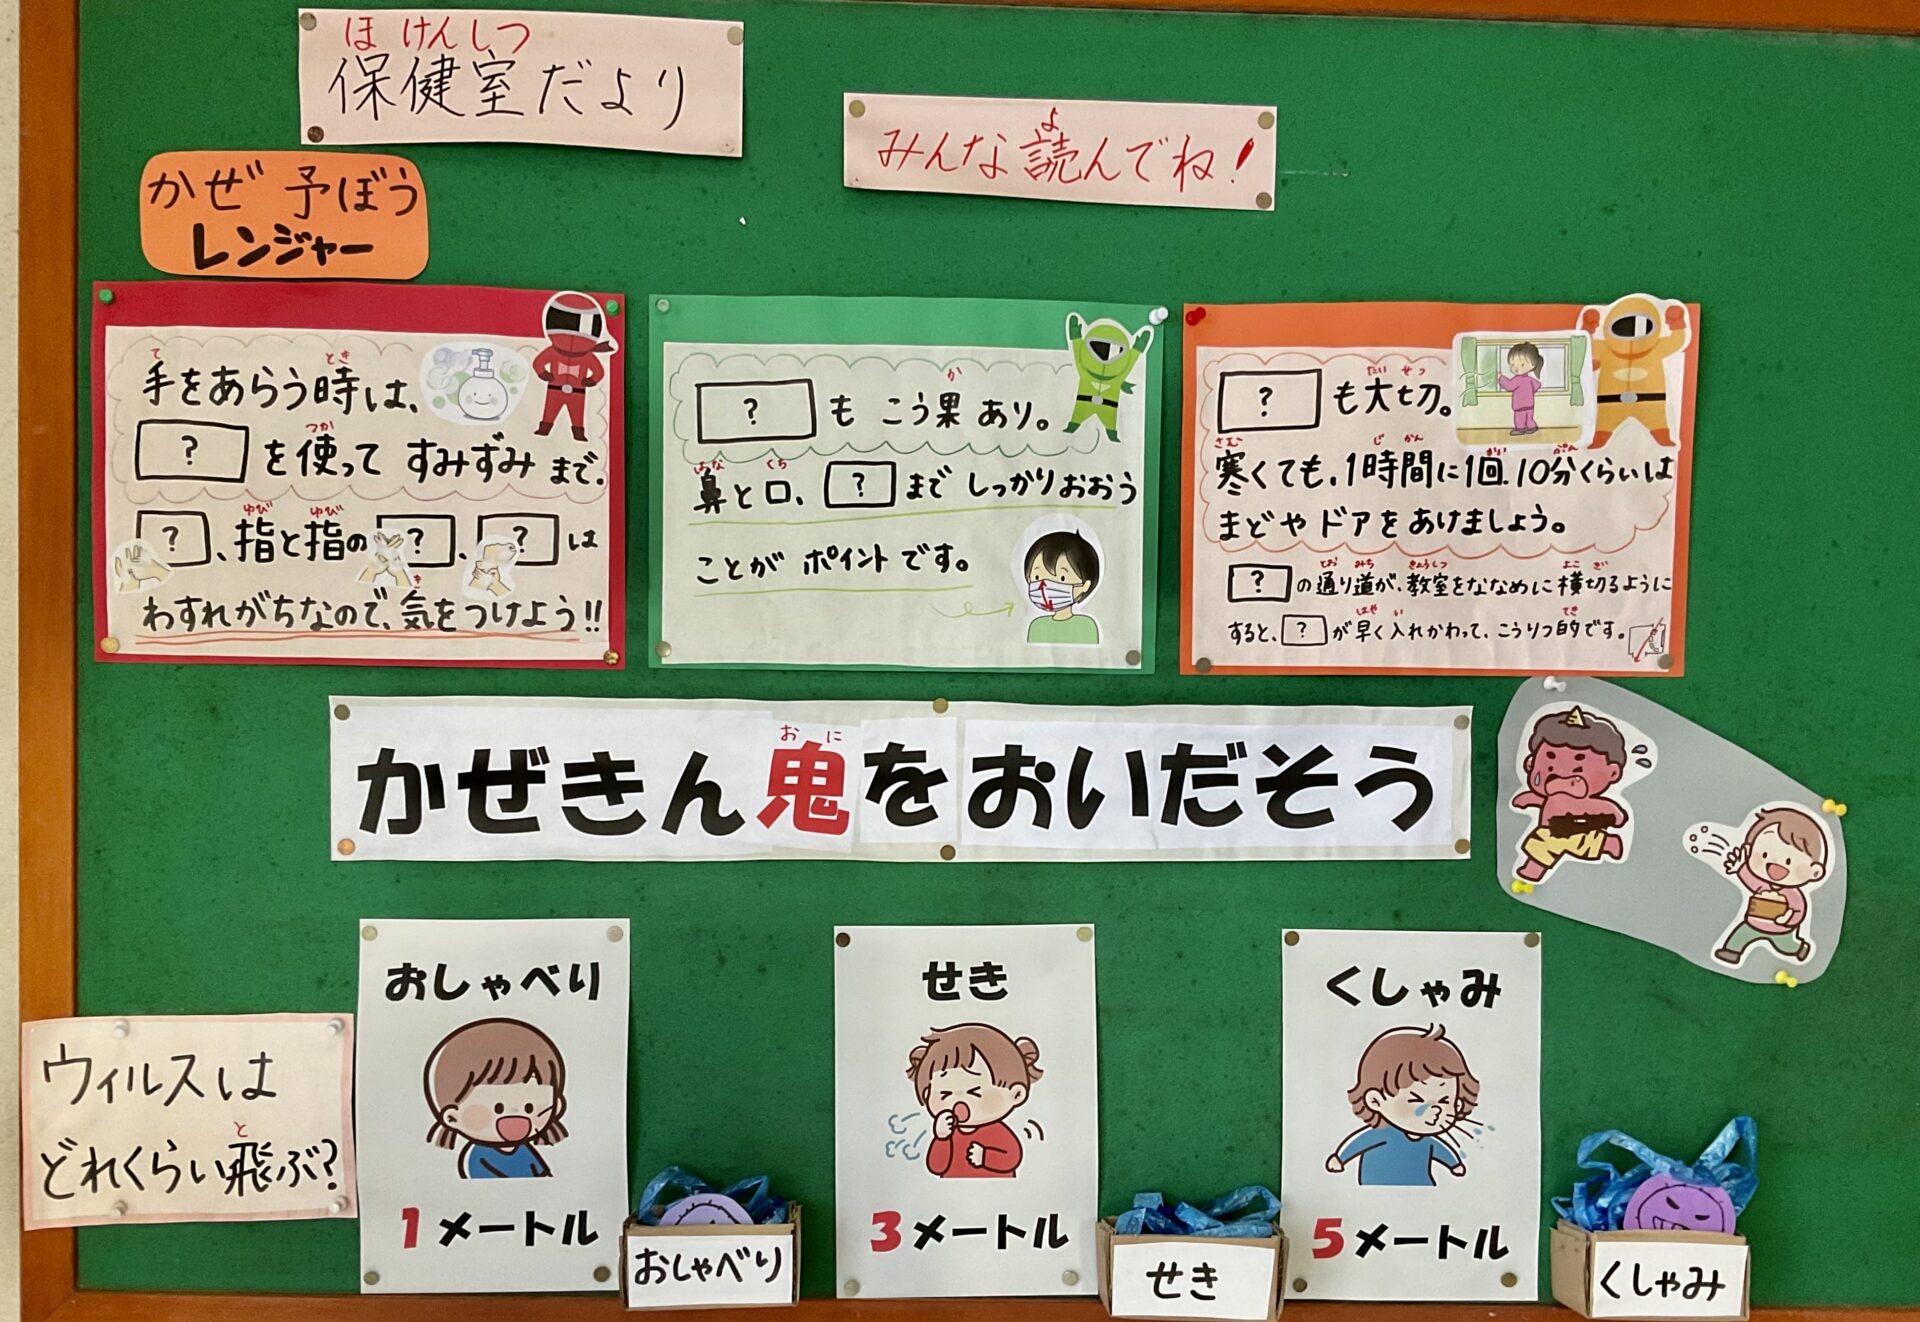 保健室だより
ほけんしつ
みんな読んでね!
よ
かぜ 予ぼう
レンジャー
手をあらう時は、
て とき
? を使って すみずみ まで。
つか
?、指と指の ?、? は
ゆび ゆび
わすれがちなので、気をつけよう!!
き
? も こう果 あり。
か
鼻と口、? まで しっかりおおう
はな くち
ことが ポイント です。
? も大切。
たい せつ
寒くても、1時間に1回、10分くらいは
さむ じ かん かい ぷん
まどや ドアを あけましょう。
? の通り道が、教室をななめに横切るように
とお みち きょうしつ よこ ぎ
すると、? が早く入れかわって、こうりつ的です。
はや い てき
かぜきん鬼をおいだそう
おに
ウィルスは
どれくらい飛ぶ?
と
おしゃべり
1メートル
おしゃべり
せき
3メートル
せき
くしゃみ
5メートル
くしゃみ